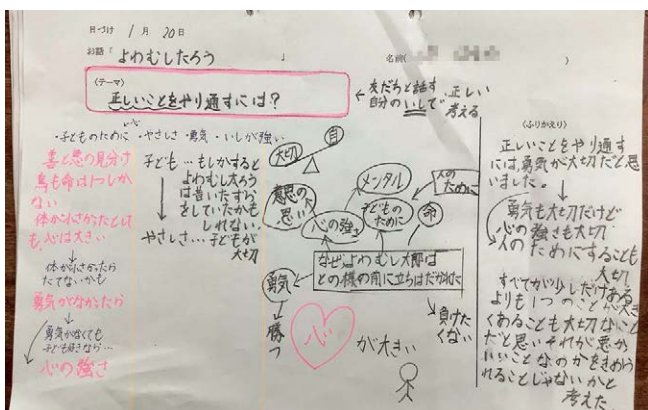 日づけ 1月 20日
お話「よわむしたろう 」
名前( )
〈テーマ〉
正しいことをやり通すには?
←友だちと話す 正しい
自分のいしで 考える
・子どものために ・やさしさ ・勇気 ・いしが強い
善と悪の見分け
鳥も命は1つしか
ない
体が小さかったとして
も、心は大きい
↓
体が小さかったら
たてないかも
勇気がなかったら
↓
勇気がなくても
子ども好きなら…
心の強さ
子ども…もしかすると
よわむし太ろう
は昔いたずら
をしていたかも
しれない。
やさしさ…子どもが
大切
大切
自
メンタル
人の
ために
意思の
思い
心の強さ
子どもの
ために
命
なぜ、よわむし太郎は
との様の前に立ちはだかれた
勇気
↓
勝つ
心
が大きい
負けた
くない
〈ふりかえり〉
正しいことをやり通す
には、勇気が大切だと思
いました。
↓
勇気も大切だけど
心の強さも大切
人のためにすることも
大切
すべてが少しだけある
よりも1つのことが大き
くあることも大切なこと
だと思いそれが悪か
いいことなのかをきめら
れることじゃないかと
考えた